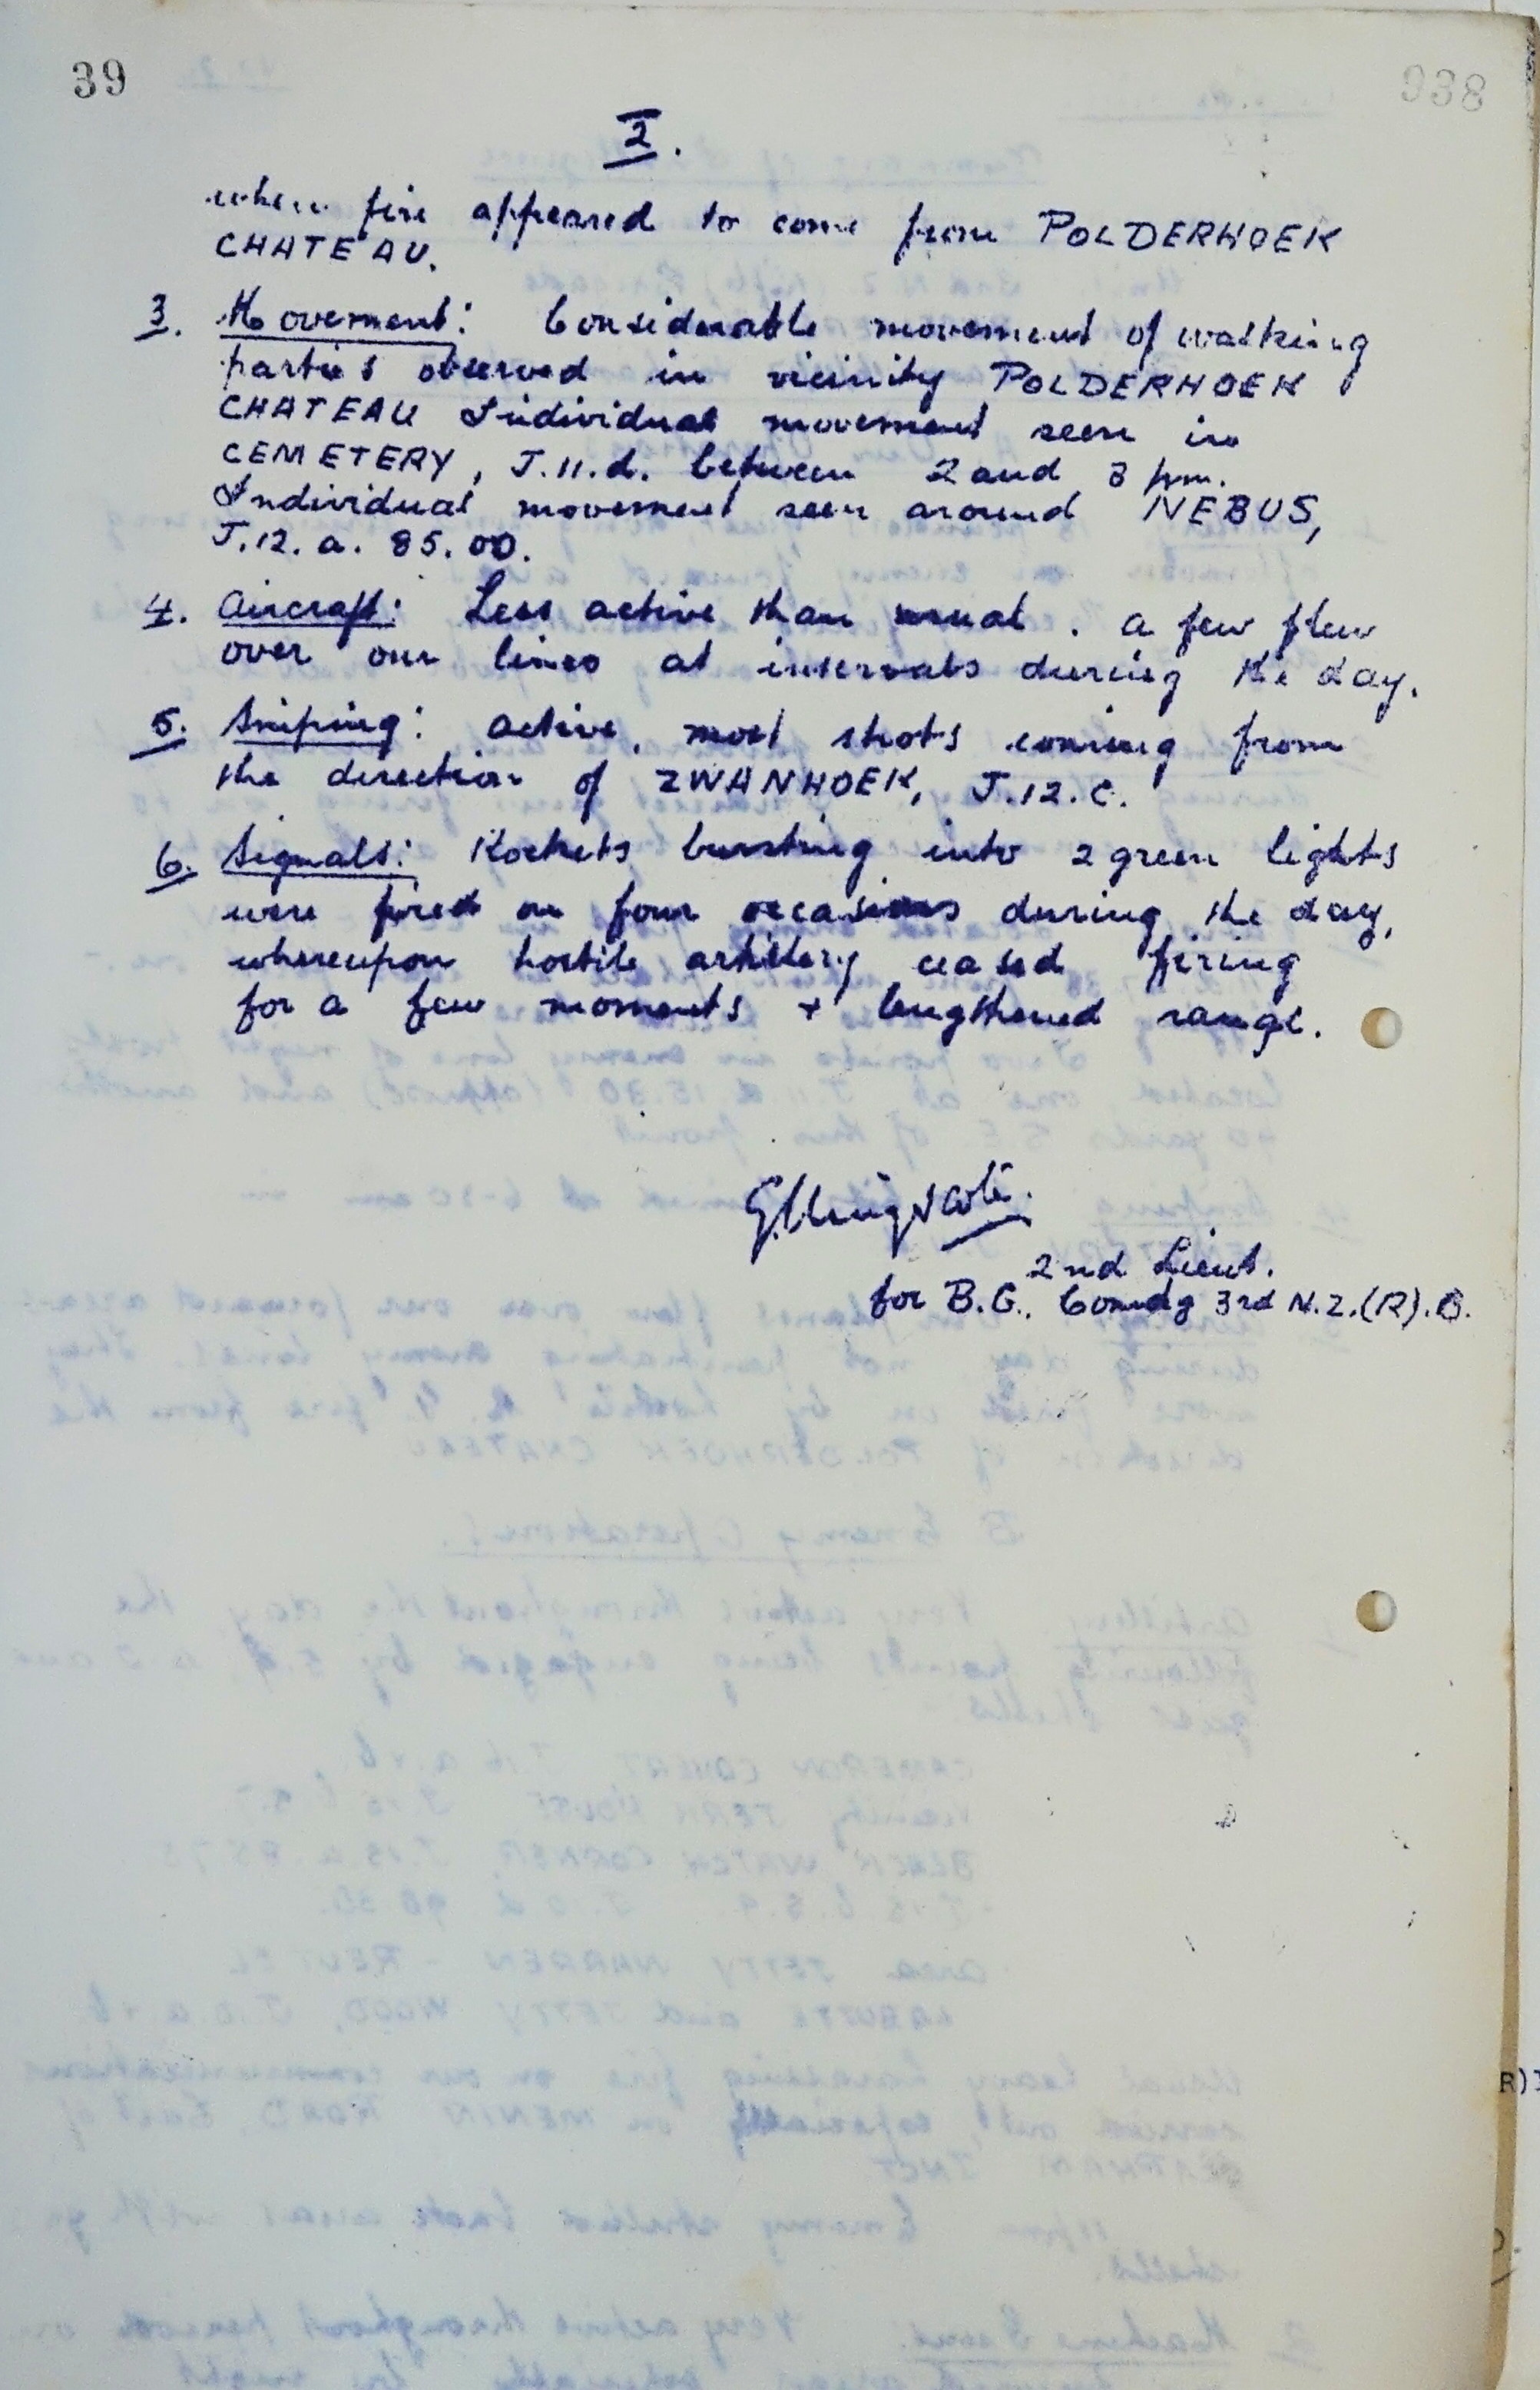 39
938
2.
where fire appeared to come from POLDERHOEK
CHATEAU.
3. Movement: Considerable movement of walking
parties observed in vicinity POLDERHOEK
CHATEAU Individual movement seen in
CEMETERY, J.11.d. between 2 and 3 pm.
Individual movement seen around NEBUS,
J.12.a. 85.00.
4. Aircraft: Less active than usual. A few flew
over our lines at intervals during the day.
5. Sniping: Active, most shots coming from
the direction of ZWANHOEK, J.12.C.
6. Signals: Rockets bursting into 2 green lights
were fired on four occasions during the day,
whereupon hostile artillery ceased firing
for a few moments + lengthened range.
2nd Lieut.
for B.G., Comdg 3rd N.Z.(R).B.
R)